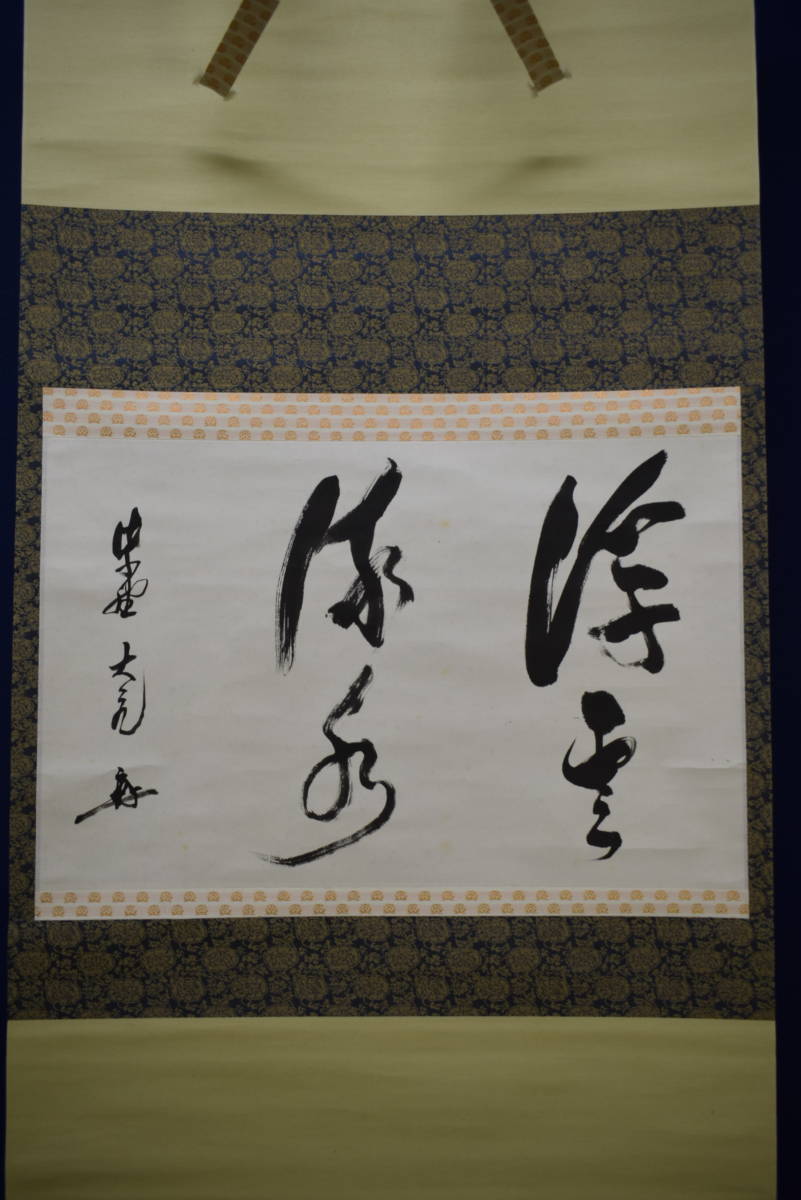 浮雲
流水
紫野 大亀